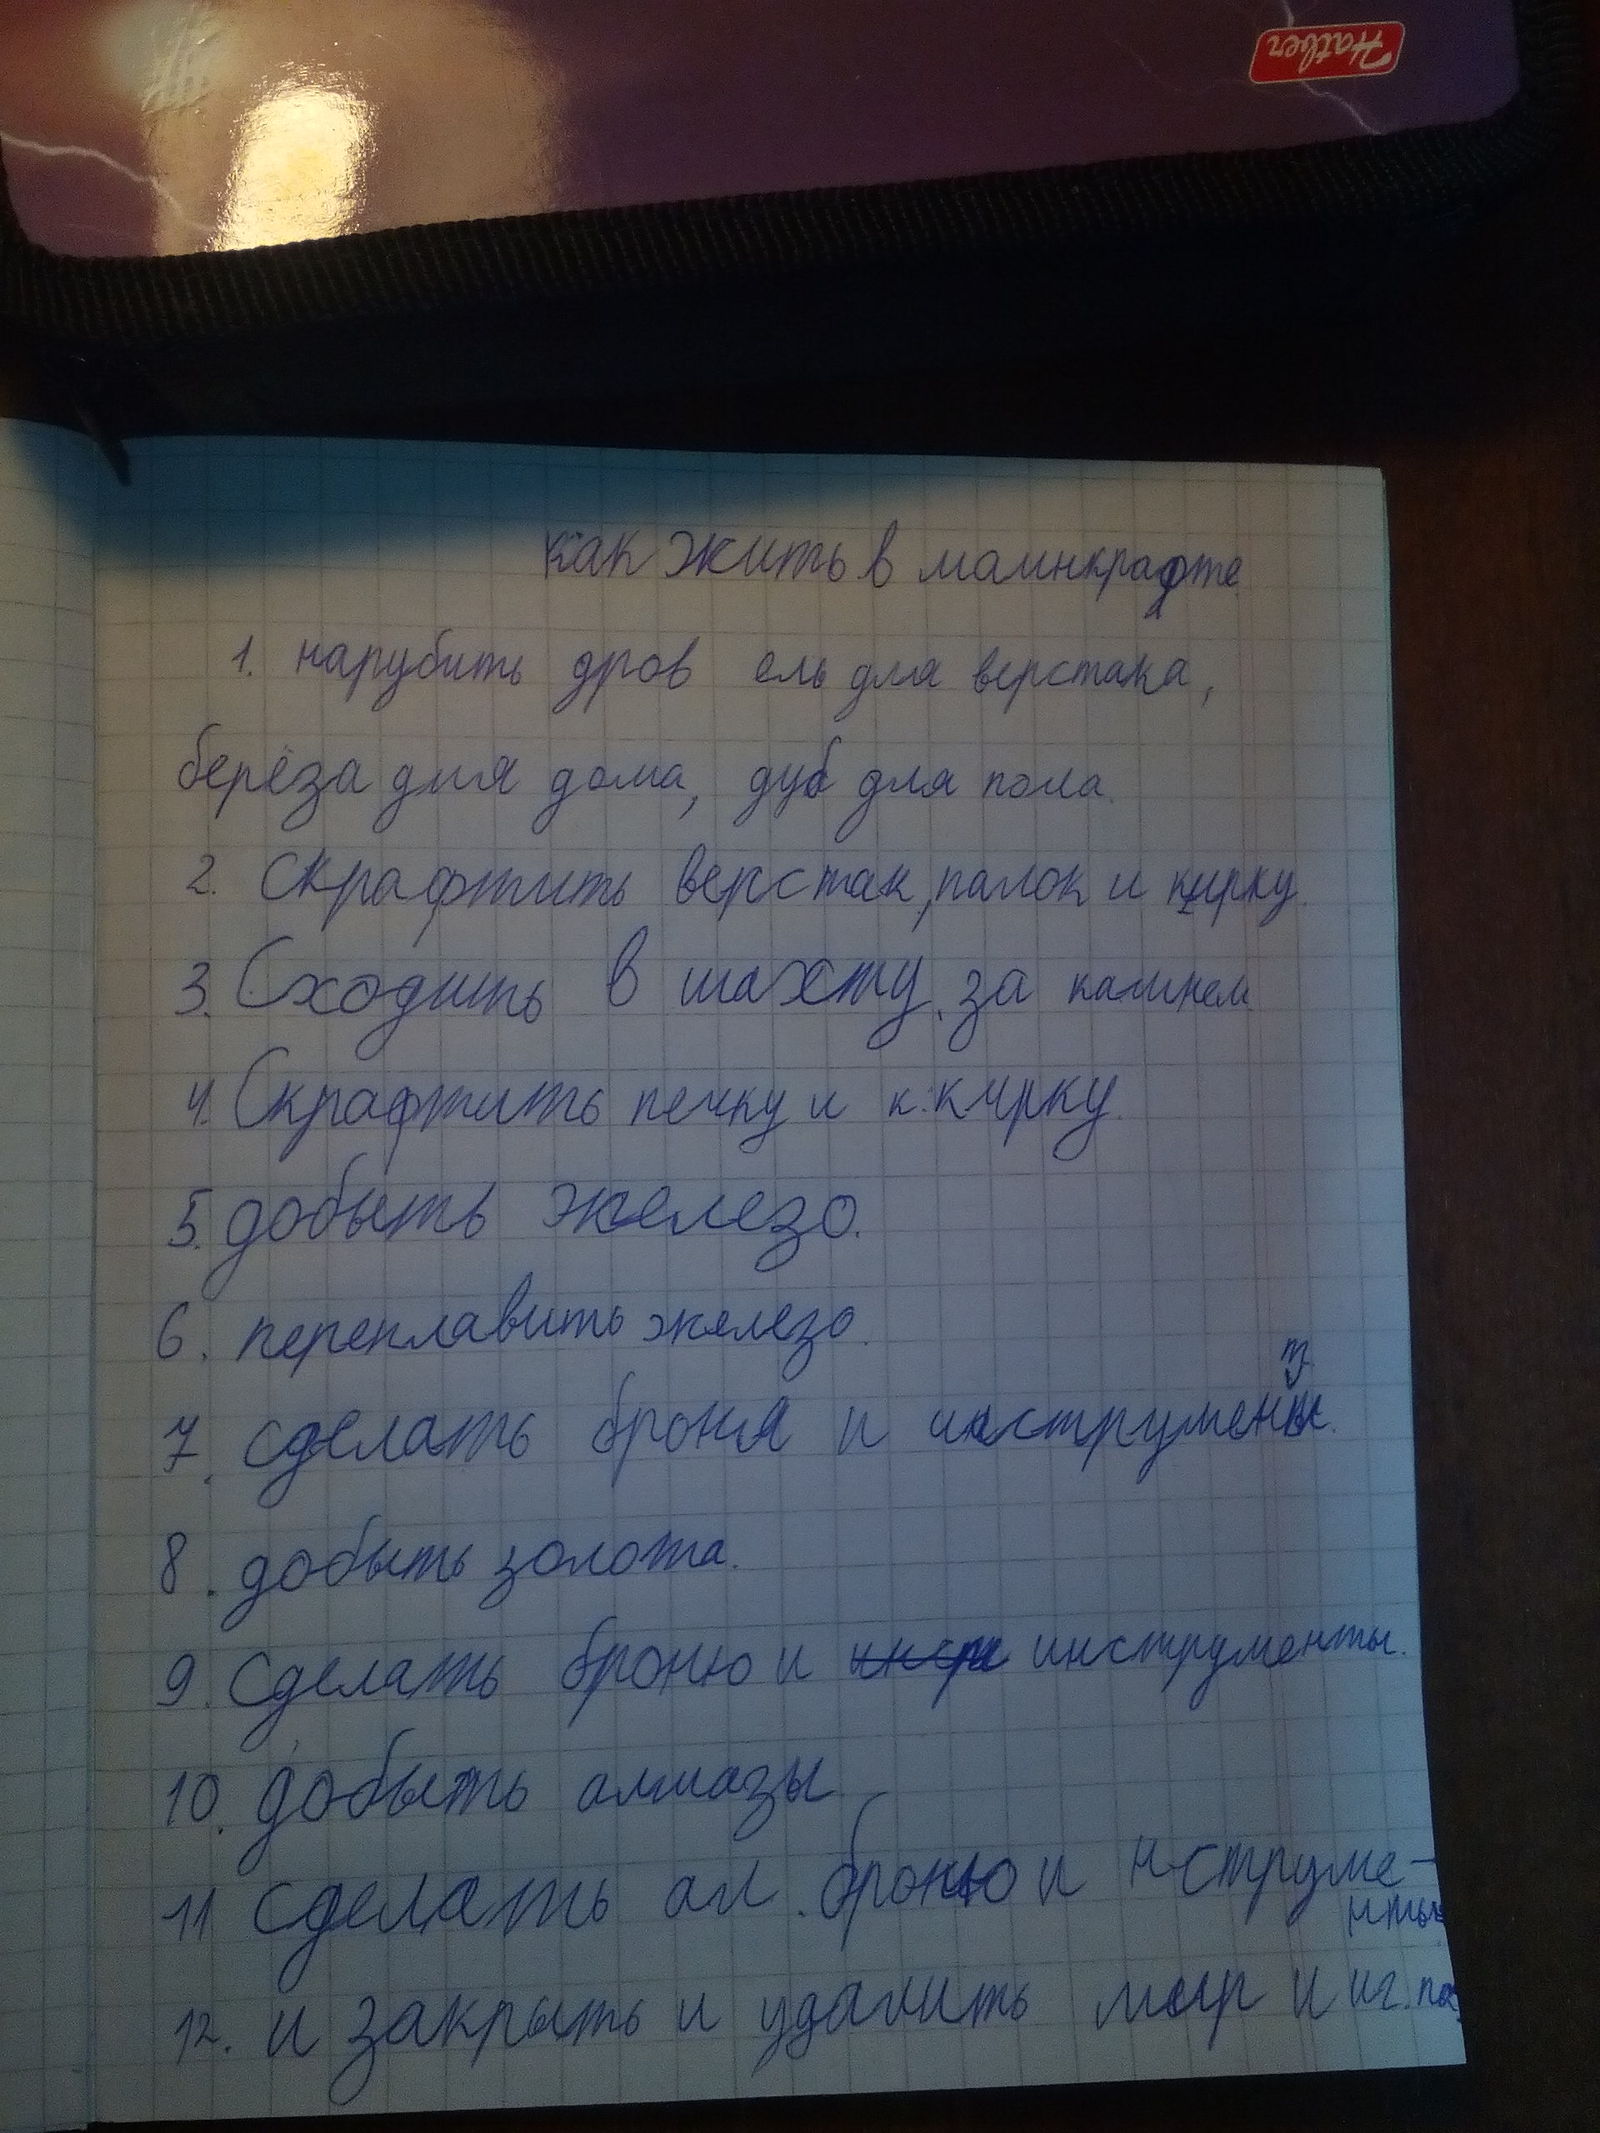 Hatber
как жить в маинкрафте
1. нарубить дров ель для верстака,
берёза для дома, дуб для пола.
2. Скрафтить верстак, палок и кирку.
3. Сходить в шахту за камнем
4. Скрафтить печку и к.кирку.
5. добыть железо.
6. переплавить железо.
7. сделать броня и инструменты.
8. добыть золота.
9. Сделать броню и инструменты.
10. добыть алмазы
11 сделать ал. броню и нструме-
нты
12. и закрыть и удалить мир и иг.